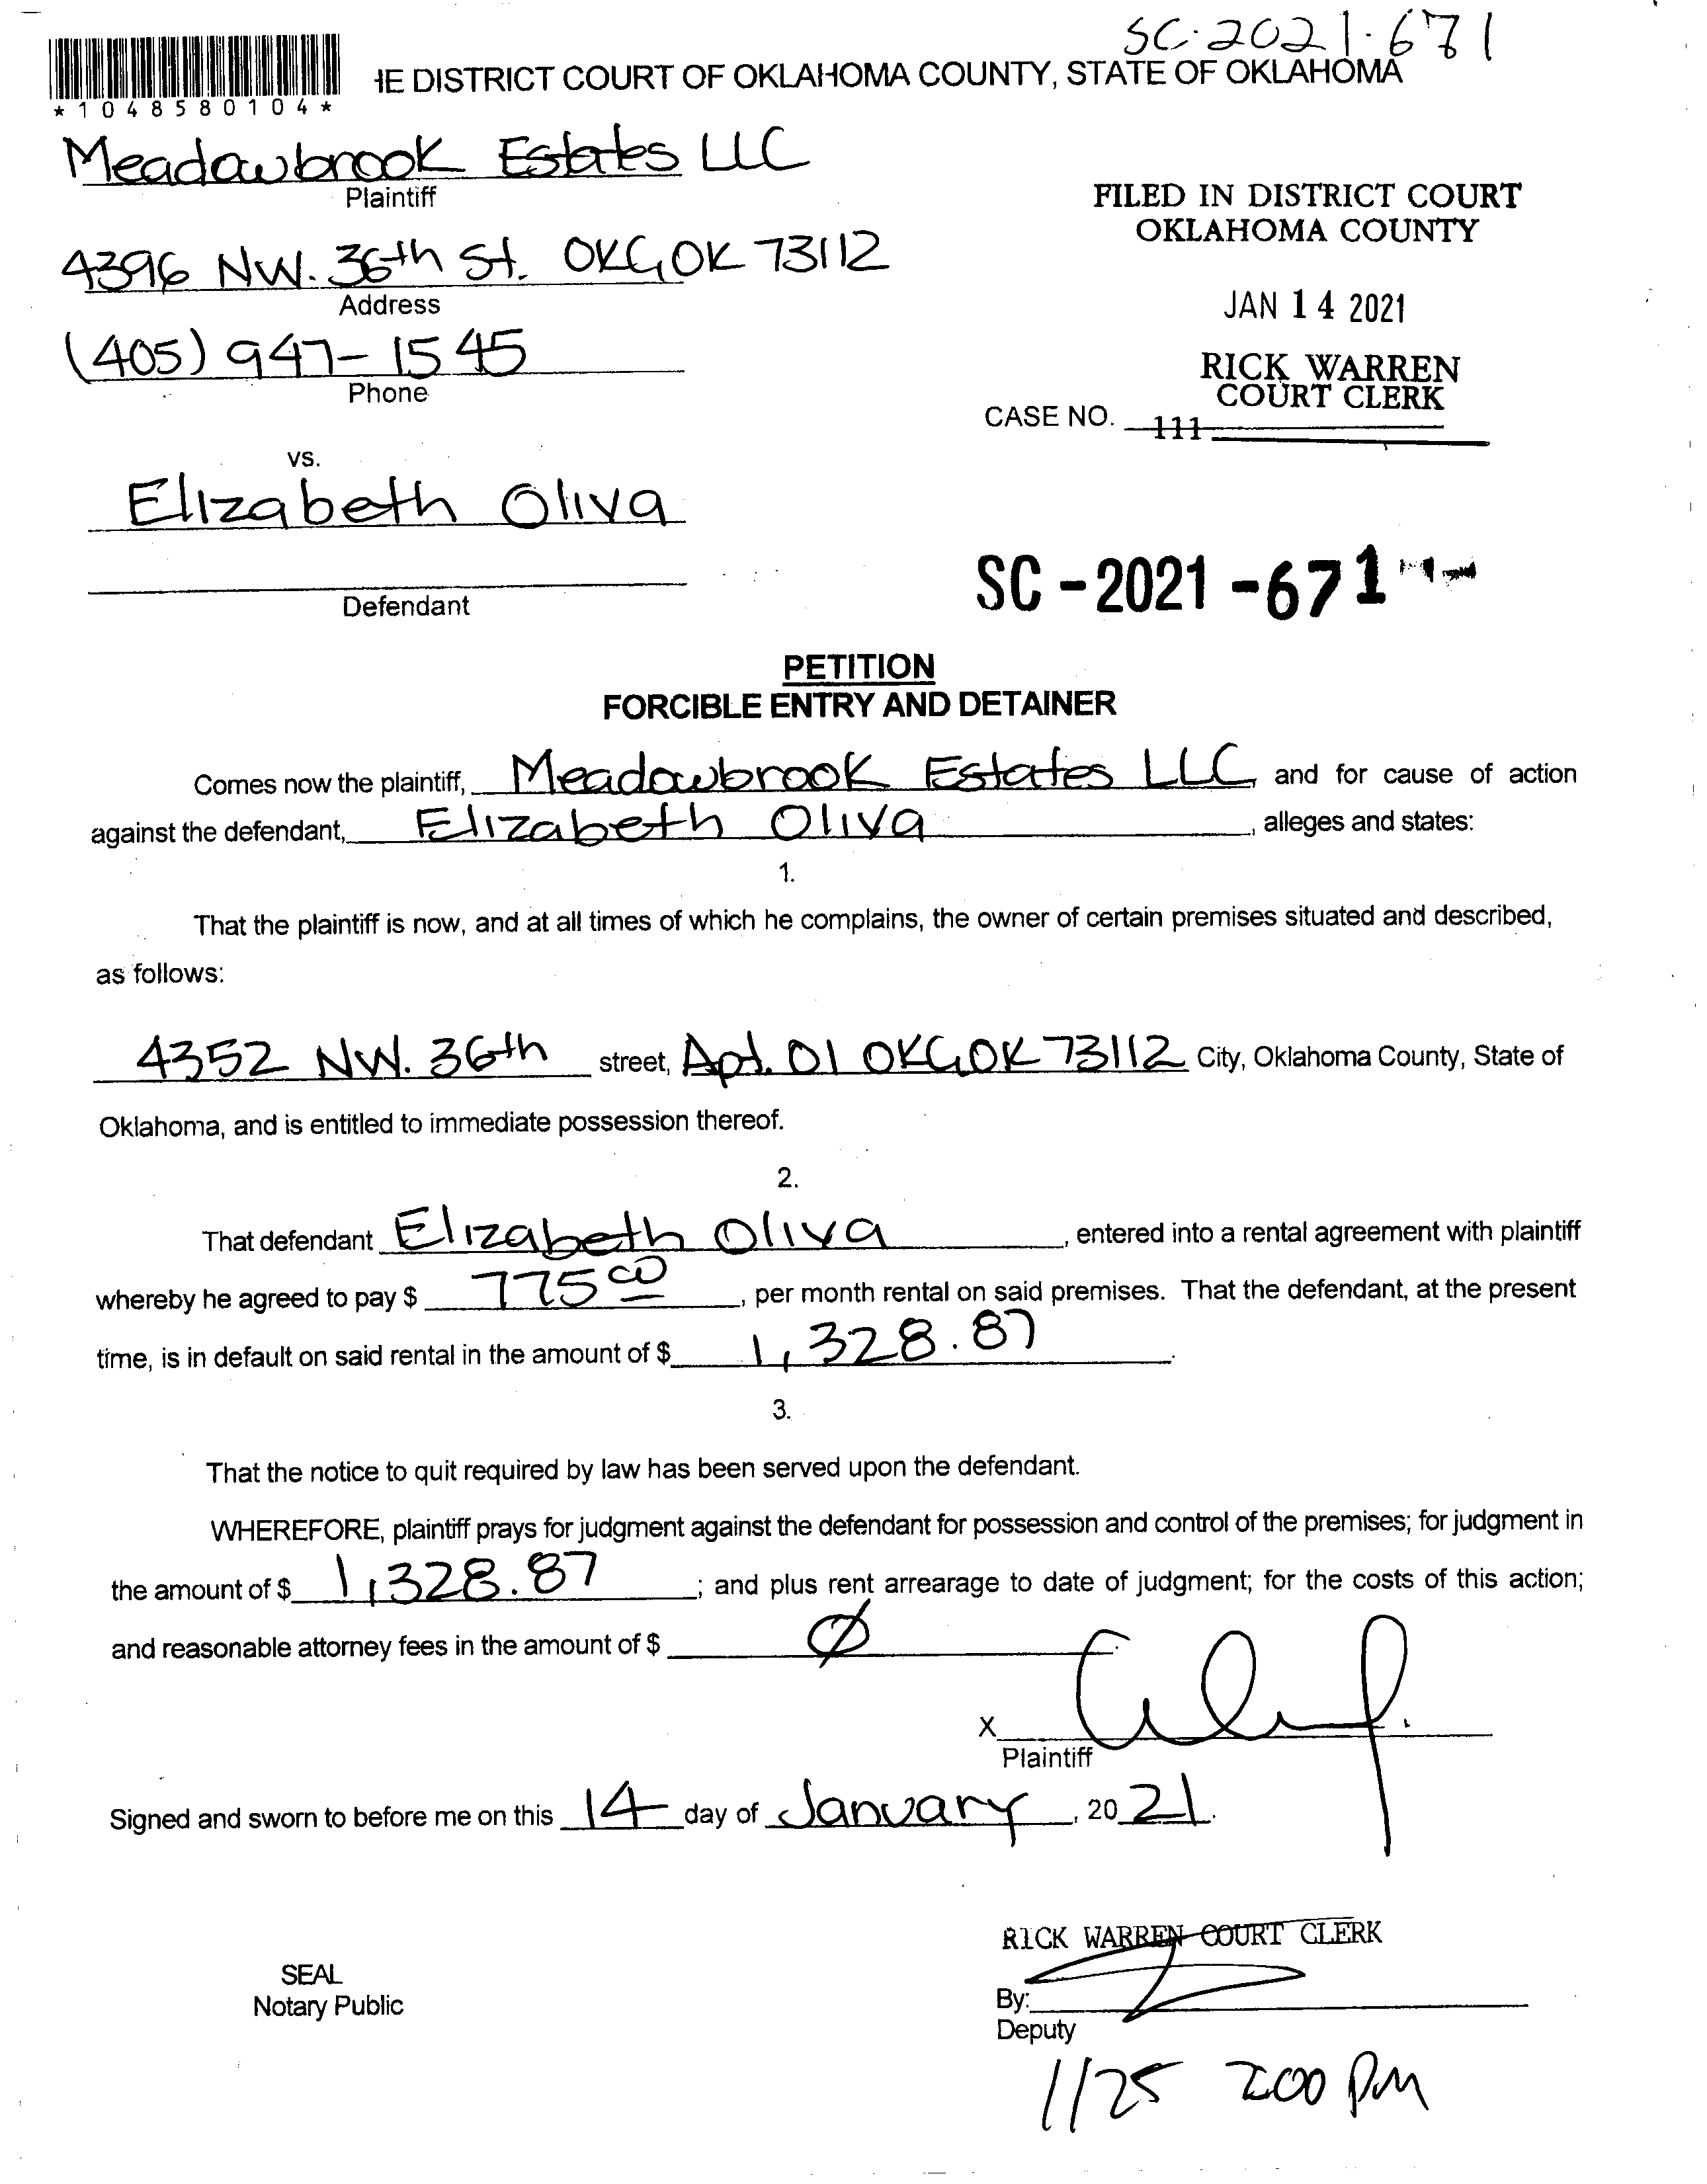 SC-2021-671
*1048580104*
HE DISTRICT COURT OF OKLAHOMA COUNTY, STATE OF OKLAHOMA
Meadowbrook Estates LLC
Plaintiff
FILED IN DISTRICT COURT
OKLAHOMA COUNTY
4396 NW. 36th St. OKC, OK 73112
Address
JAN 14 2021
(405) 947-1545
Phone
RICK WARREN
COURT CLERK
CASE NO. 111
vs.
Elizabeth Oliva
SC-2021-671
Defendant
PETITION
FORCIBLE ENTRY AND DETAINER
Comes now the plaintiff, Meadowbrook Estates LLC, and for cause of action
against the defendant, Elizabeth Oliva, alleges and states:
1.
That the plaintiff is now, and at all times of which he complains, the owner of certain premises situated and described,
as follows:
4352 NW. 36th street, Apt. 01 OKC, OK 73112 City, Oklahoma County, State of
Oklahoma, and is entitled to immediate possession thereof.
2.
That defendant Elizabeth Oliva, entered into a rental agreement with plaintiff
whereby he agreed to pay $ 775 00, per month rental on said premises. That the defendant, at the present
time, is in default on said rental in the amount of $ 1,328.87.
3.
That the notice to quit required by law has been served upon the defendant.
WHEREFORE, plaintiff prays for judgment against the defendant for possession and control of the premises; for judgment in
the amount of $ 1,328.87; and plus rent arrearage to date of judgment; for the costs of this action;
and reasonable attorney fees in the amount of $ Ø.
X
Plaintiff
Signed and sworn to before me on this 14 day of January, 2021.
RICK WARREN COURT CLERK
SEAL
Notary Public
By:
Deputy
1/25 2:00 PM